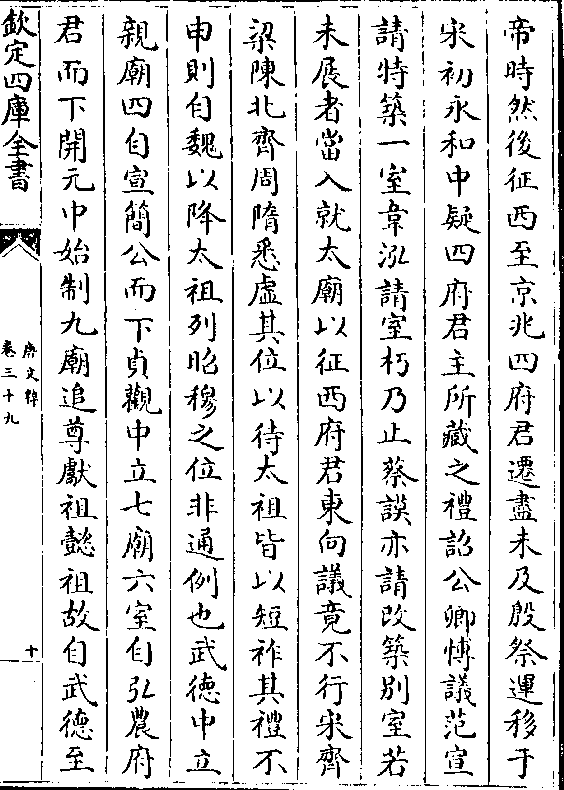 帝時然後征西至京兆四府君遷盡未及殷祭運移于
宋初永和中疑四府君主所藏之禮詔公卿愽議范宣
請特築一室韋泓請室朽乃止蔡謨亦請改築别室若
未展者當入就太廟以征西府君東向議竟不行宋齊
梁陳北齊周隋悉虚其位以待太祖皆以短祚其禮不
申則自魏以降太祖列昭穆之位非通例也武德中立
親廟四自宣簡公而下貞觀中立七廟六室自弘農府
君而下開元中始制九廟追尊獻祖懿祖故自武德至
欽定四庫全書
唐文粹
卷三十九
十